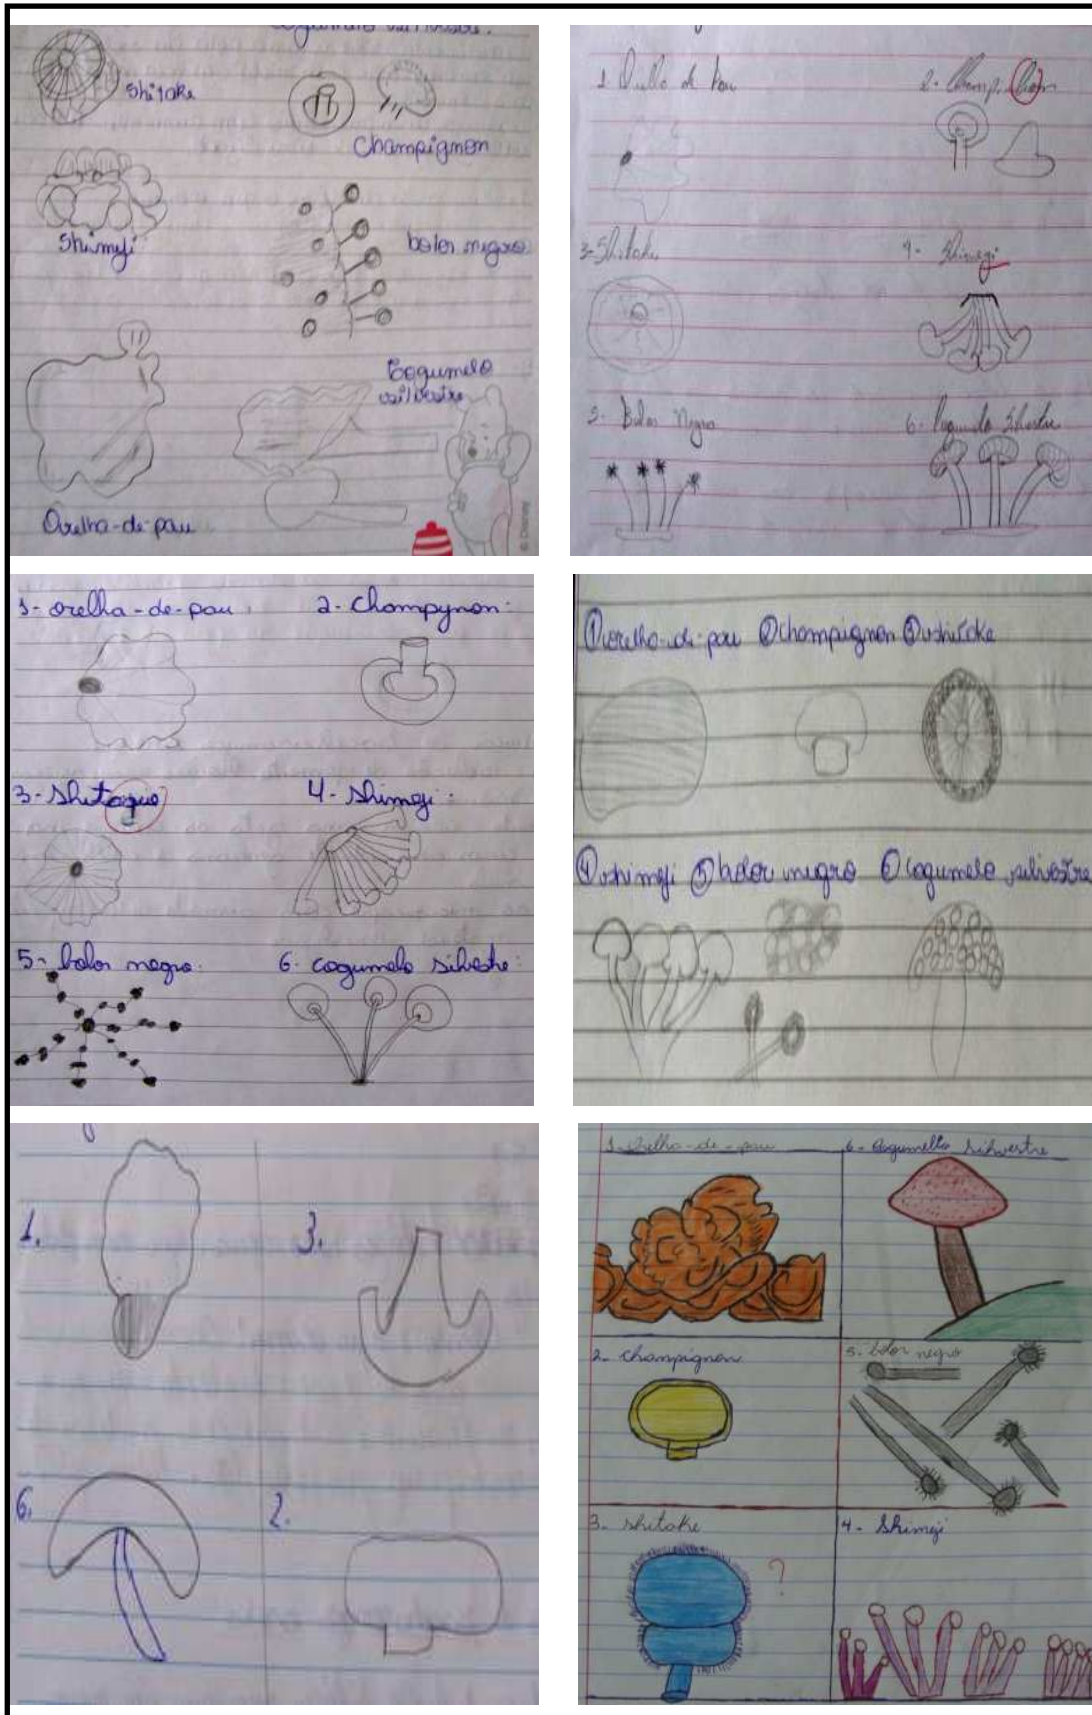 Shitake
Champignon
Shimeji
bolor negro
Cogumelo
silvestre
Orelha-de-pau
© Disney
2- Champi
3- Shitake
4- Shimegi
5- Bolor Negro
6-
1- orelha-de-pau
2- Champynon:
3- Shitaquio
4- Shimeji:
5- bolor negro.
6- cogumelo silvestre:
1 orelha-de-pau 2 Champignon 3 shitake
4 shimeji 5 bolor negro 6 Cogumelo silvestre
1.
3.
6.
2.
1- Orelha-de-pau
6- Cogumello Silvestre
2- Champignon
5- bolor negro
3- shitake
?
4- Shimeji